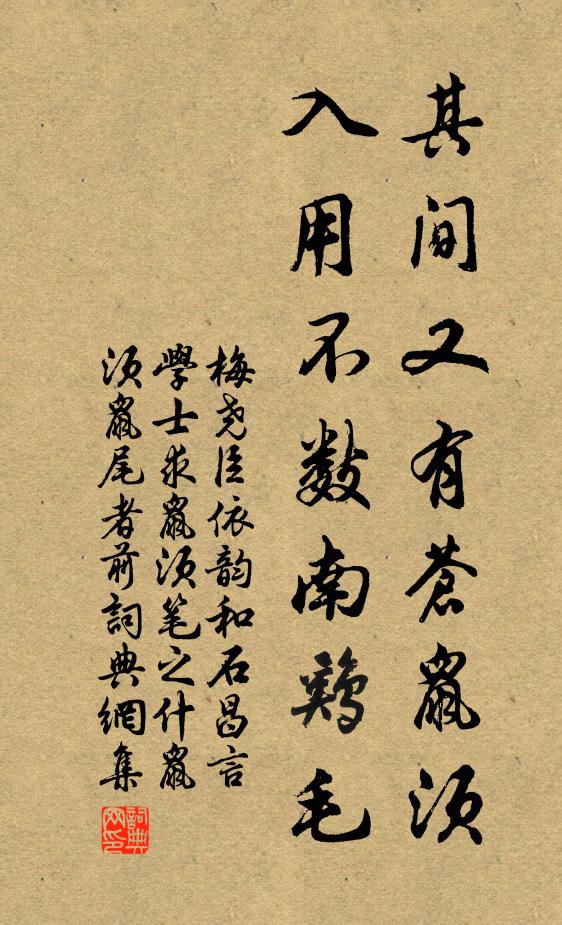 其间又有苍鼠须
入用不数南鸡毛
梅尧臣依韵和石昌言
學士求鼠须笔之什鼠
须鼠尾者前詞典網集
詞典网印